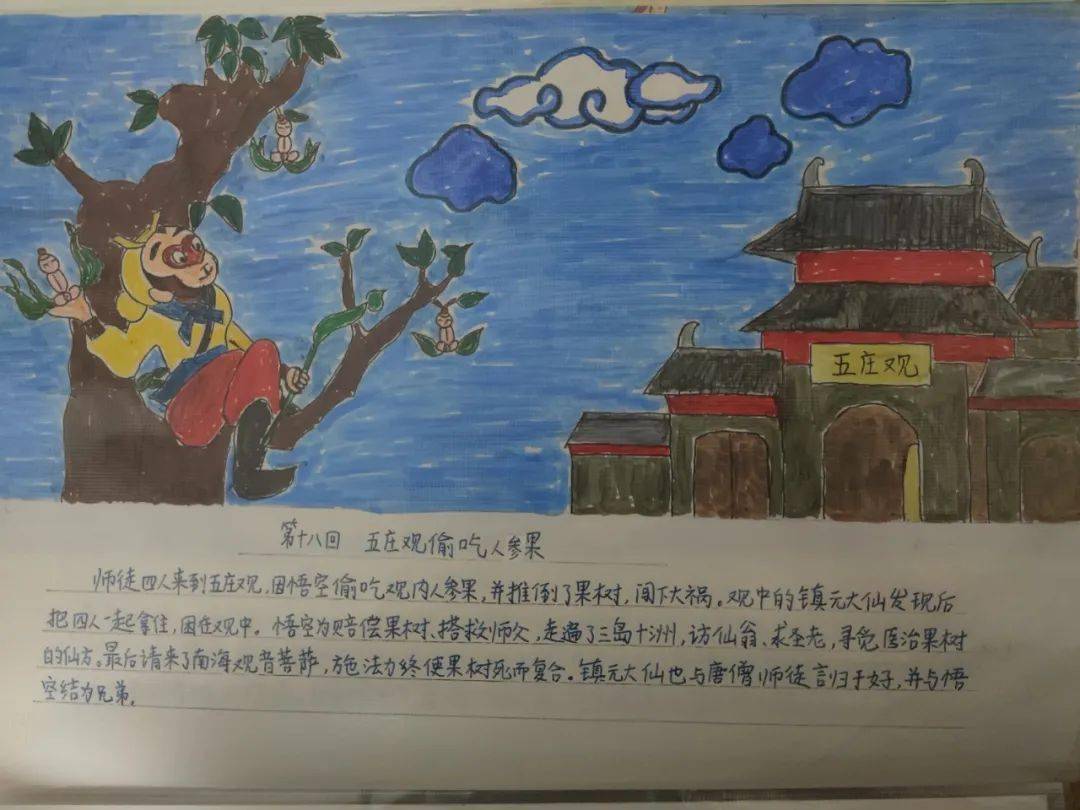 五庄观
第十八回 五庄观偷吃人参果
师徒四人来到五庄观,因悟空偷吃观内人参果,并推倒了果树,闯下大祸。观中的镇元大仙发现后
把四人一起拿住,困在观中。悟空为赔偿果树、搭救师父,走遍了三岛十洲,访仙翁、求圣老,寻觅医治果树
的仙方。最后请来了南海观音菩萨,施法力终使果树死而复合。镇元大仙也与唐僧师徒言归于好,并与悟
空结为兄弟。